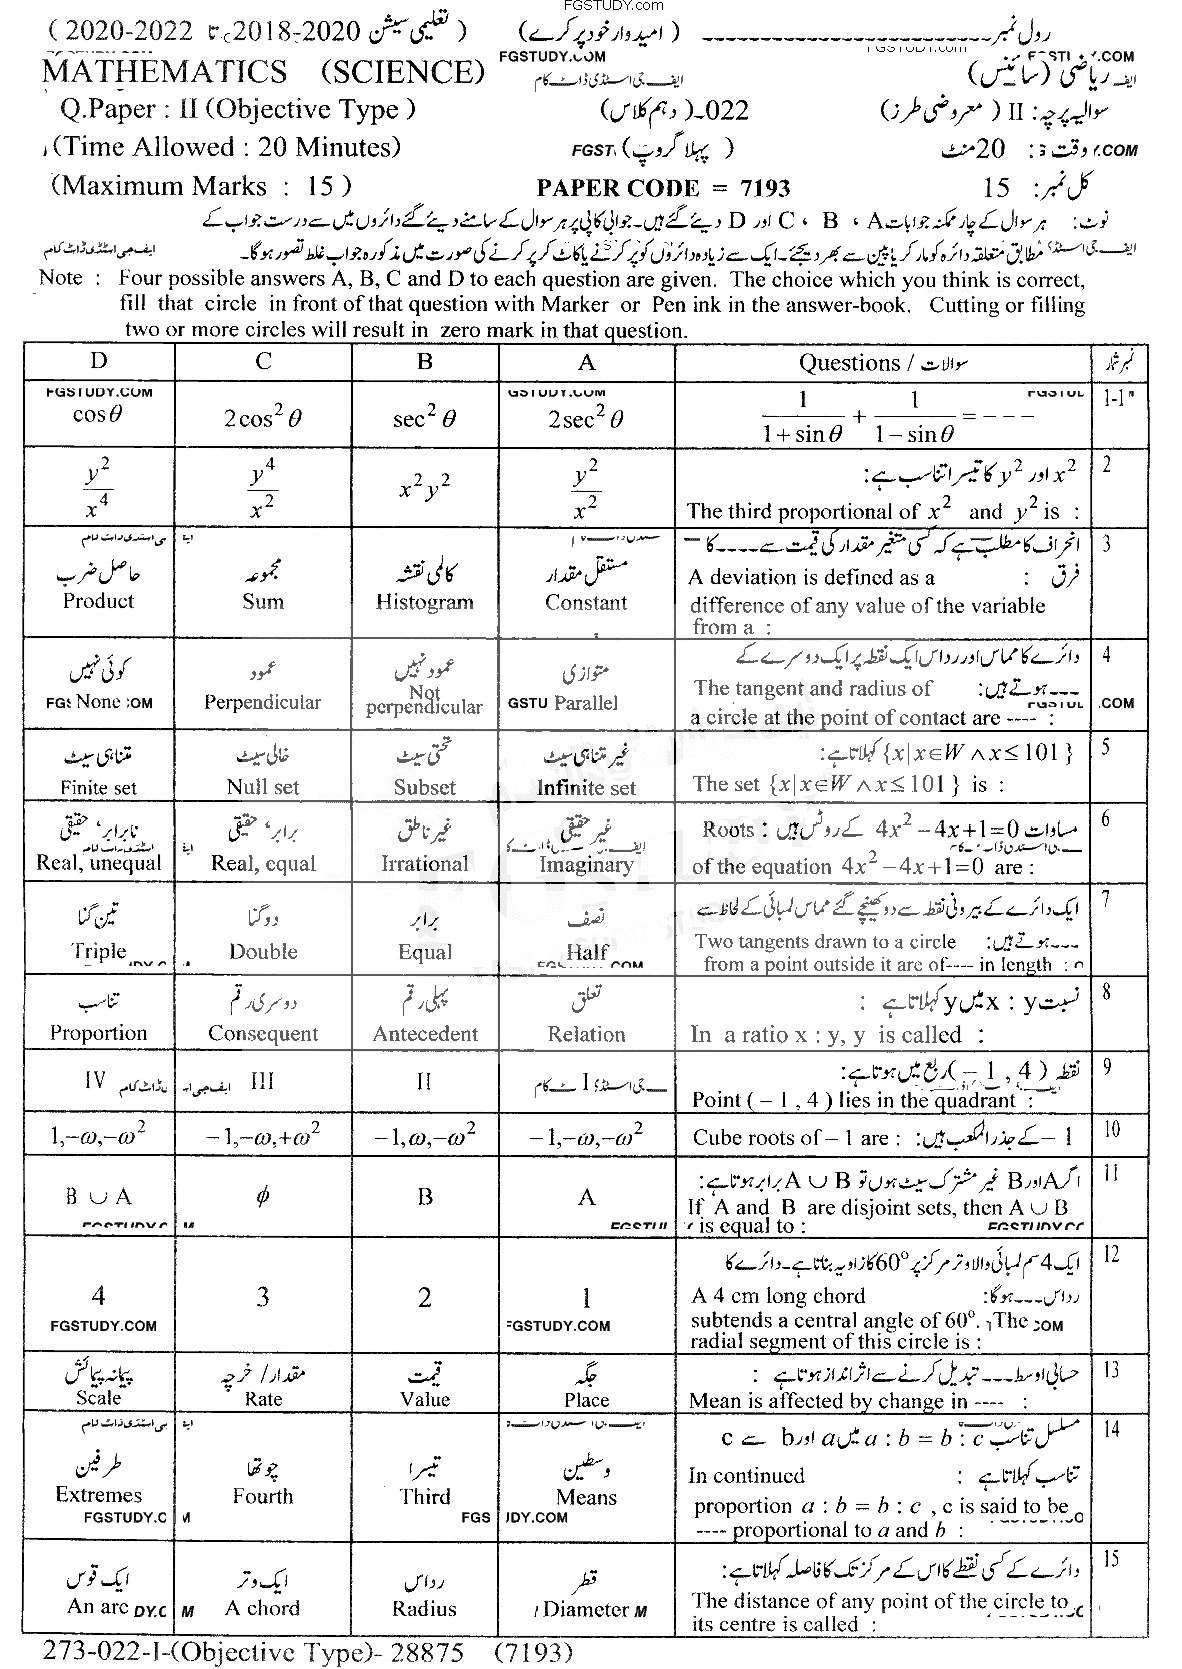 FGSTUDY.com
رول نمبر ـــــــــــــــــــــــــ (امیدوار خود پر کرے) (تعلیمی سیشن 2018-2020 تا 2020-2022)
FGSTUDY.COM
MATHEMATICS (SCIENCE) ریاضی (سائنس)
Q.Paper : II (Objective Type) 022۔(دہم کلاس) سوالیہ پرچہ: II (معروضی طرز)
(Time Allowed : 20 Minutes) (پہلا گروپ) 20 منٹ
(Maximum Marks : 15) PAPER CODE = 7193 کل نمبر: 15
نوٹ: ہر سوال کے چار ممکنہ جوابات A ، B ، C اور D دیئے گئے ہیں۔ جوابی کاپی پر ہر سوال کے سامنے دیئے گئے دائروں میں سے درست جواب کے
مطابق متعلقہ دائرہ کو مارکر یا پین سے بھر دیجئے۔ ایک سے زیادہ دائروں کو پر کرنے یا کاٹ کر پر کرنے کی صورت میں مذکورہ جواب غلط تصور ہوگا۔
Note : Four possible answers A, B, C and D to each question are given. The choice which you think is correct,
fill that circle in front of that question with Marker or Pen ink in the answer-book. Cutting or filling
two or more circles will result in zero mark in that question.
D C B A Questions / سوالات نمبر شمار
cosθ 2cos²θ sec²θ 2sec²θ 1/(1+sinθ) + 1/(1−sinθ) = --- 1-1
x² اور y² کا تیسرا تناسب ہے: 2
y²/x⁴ y⁴/x² x²y² y²/x²
The third proportional of x² and y² is :
انحراف کا مطلب ہے کہ کسی متغیر مقدار کی قیمت سے ---- کا 3
فرق :
حاصل ضرب مجموعہ کالمی نقشہ مستقل مقدار
Product Sum Histogram Constant
A deviation is defined as a
difference of any value of the variable
from a :
دائرے کا مماس اور رداس ایک نقطہ پر ایک دوسرے کے 4
---ہوتے ہیں:
کوئی نہیں عمود عمود نہیں متوازی
None Perpendicular Not perpendicular Parallel
The tangent and radius of
a circle at the point of contact are ---- :
{x|x∈W ∧ x≤101} کہلاتا ہے: 5
متناہی سیٹ خالی سیٹ تحتی سیٹ غیر متناہی سیٹ
Finite set Null set Subset Infinite set
The set {x|x∈W ∧ x≤101} is :
مساوات 4x²−4x+1=0 کے روٹس ہیں: Roots 6
نابرابر، حقیقی برابر، حقیقی غیر ناطق غیر حقیقی
Real, unequal Real, equal Irrational Imaginary
of the equation 4x²−4x+1=0 are :
ایک دائرے کے بیرونی نقطہ سے دو کھینچے گئے مماس لمبائی کے لحاظ سے 7
---ہوتے ہیں:
تین گنا دوگنا برابر نصف
Triple Double Equal Half
Two tangents drawn to a circle
from a point outside it are of---- in length :
نسبت x : y میں y کہلاتا ہے : 8
تناسب دوسری رقم پہلی رقم تعلق
Proportion Consequent Antecedent Relation
In a ratio x : y, y is called :
نقطہ (−1 , 4) ربع میں ہوتا ہے: 9
IV III II I
Point (−1 , 4) lies in the quadrant :
1,−ω,−ω² −1,−ω,+ω² −1,ω,−ω² −1,−ω,−ω² Cube roots of −1 are : −1 کے جذرالمکعب ہیں: 10
اگر A اور B غیر مشترک سیٹ ہوں تو A ∪ B برابر ہوتا ہے: 11
B ∪ A ϕ B A
If A and B are disjoint sets, then A ∪ B
is equal to :
ایک 4 سم لمبائی والا وتر مرکز پر 60° کا زاویہ بناتا ہے۔ دائرے کا 12
رداس---ہوگا:
4 3 2 1
A 4 cm long chord
subtends a central angle of 60°. The
radial segment of this circle is :
حسابی اوسط --- تبدیل کرنے سے اثرانداز ہوتا ہے : 13
پیمانہ پیمائش مقدار/ خرچہ قیمت جگہ
Scale Rate Value Place
Mean is affected by change in ---- :
مسلسل تناسب a : b = b : c میں a اور b سے c 14
تناسب کہلاتا ہے :
طرفین چوتھا تیسرا وسطین
Extremes Fourth Third Means
In continued
proportion a : b = b : c , c is said to be
---- proportional to a and b :
دائرے کے کسی نقطے کا اس کے مرکز تک کا فاصلہ کہلاتا ہے: 15
ایک قوس ایک وتر رداس قطر
An arc A chord Radius Diameter
The distance of any point of the circle to
its centre is called :
273-022-I-(Objective Type)- 28875 (7193)